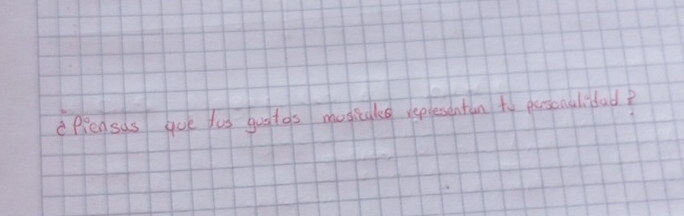 ¿Piensas que tus gustos musicales representan tu personalidad?